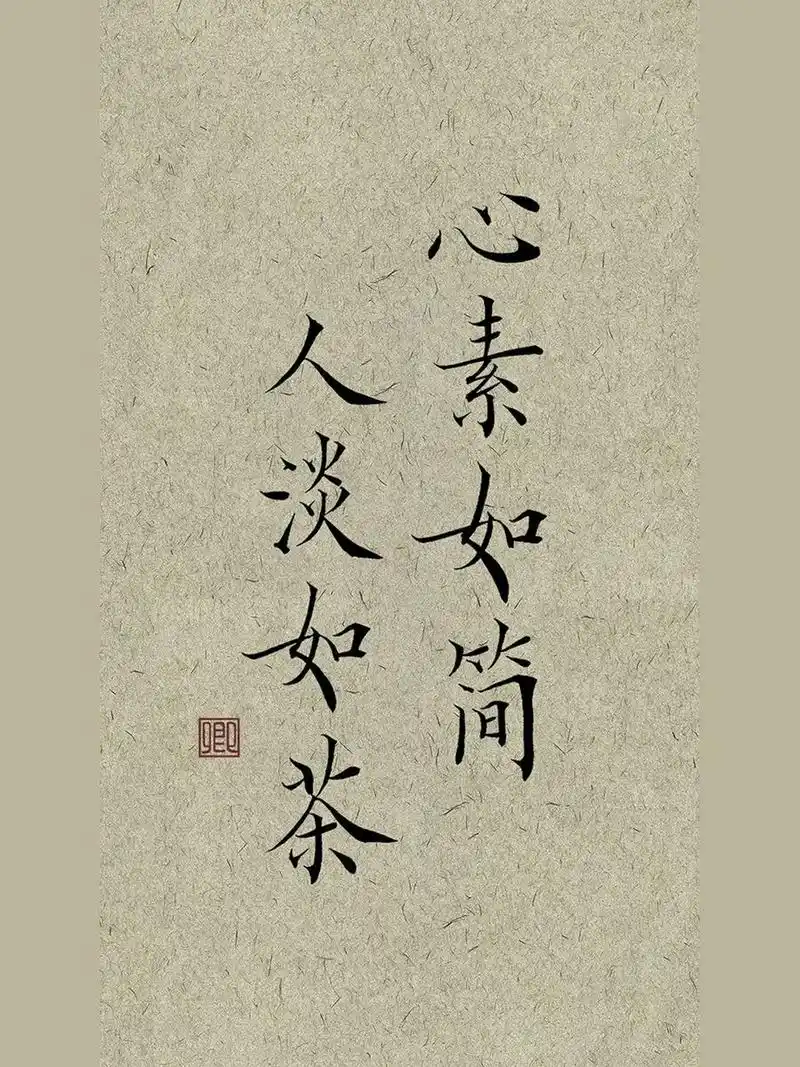 心素如简
人淡如茶
卿